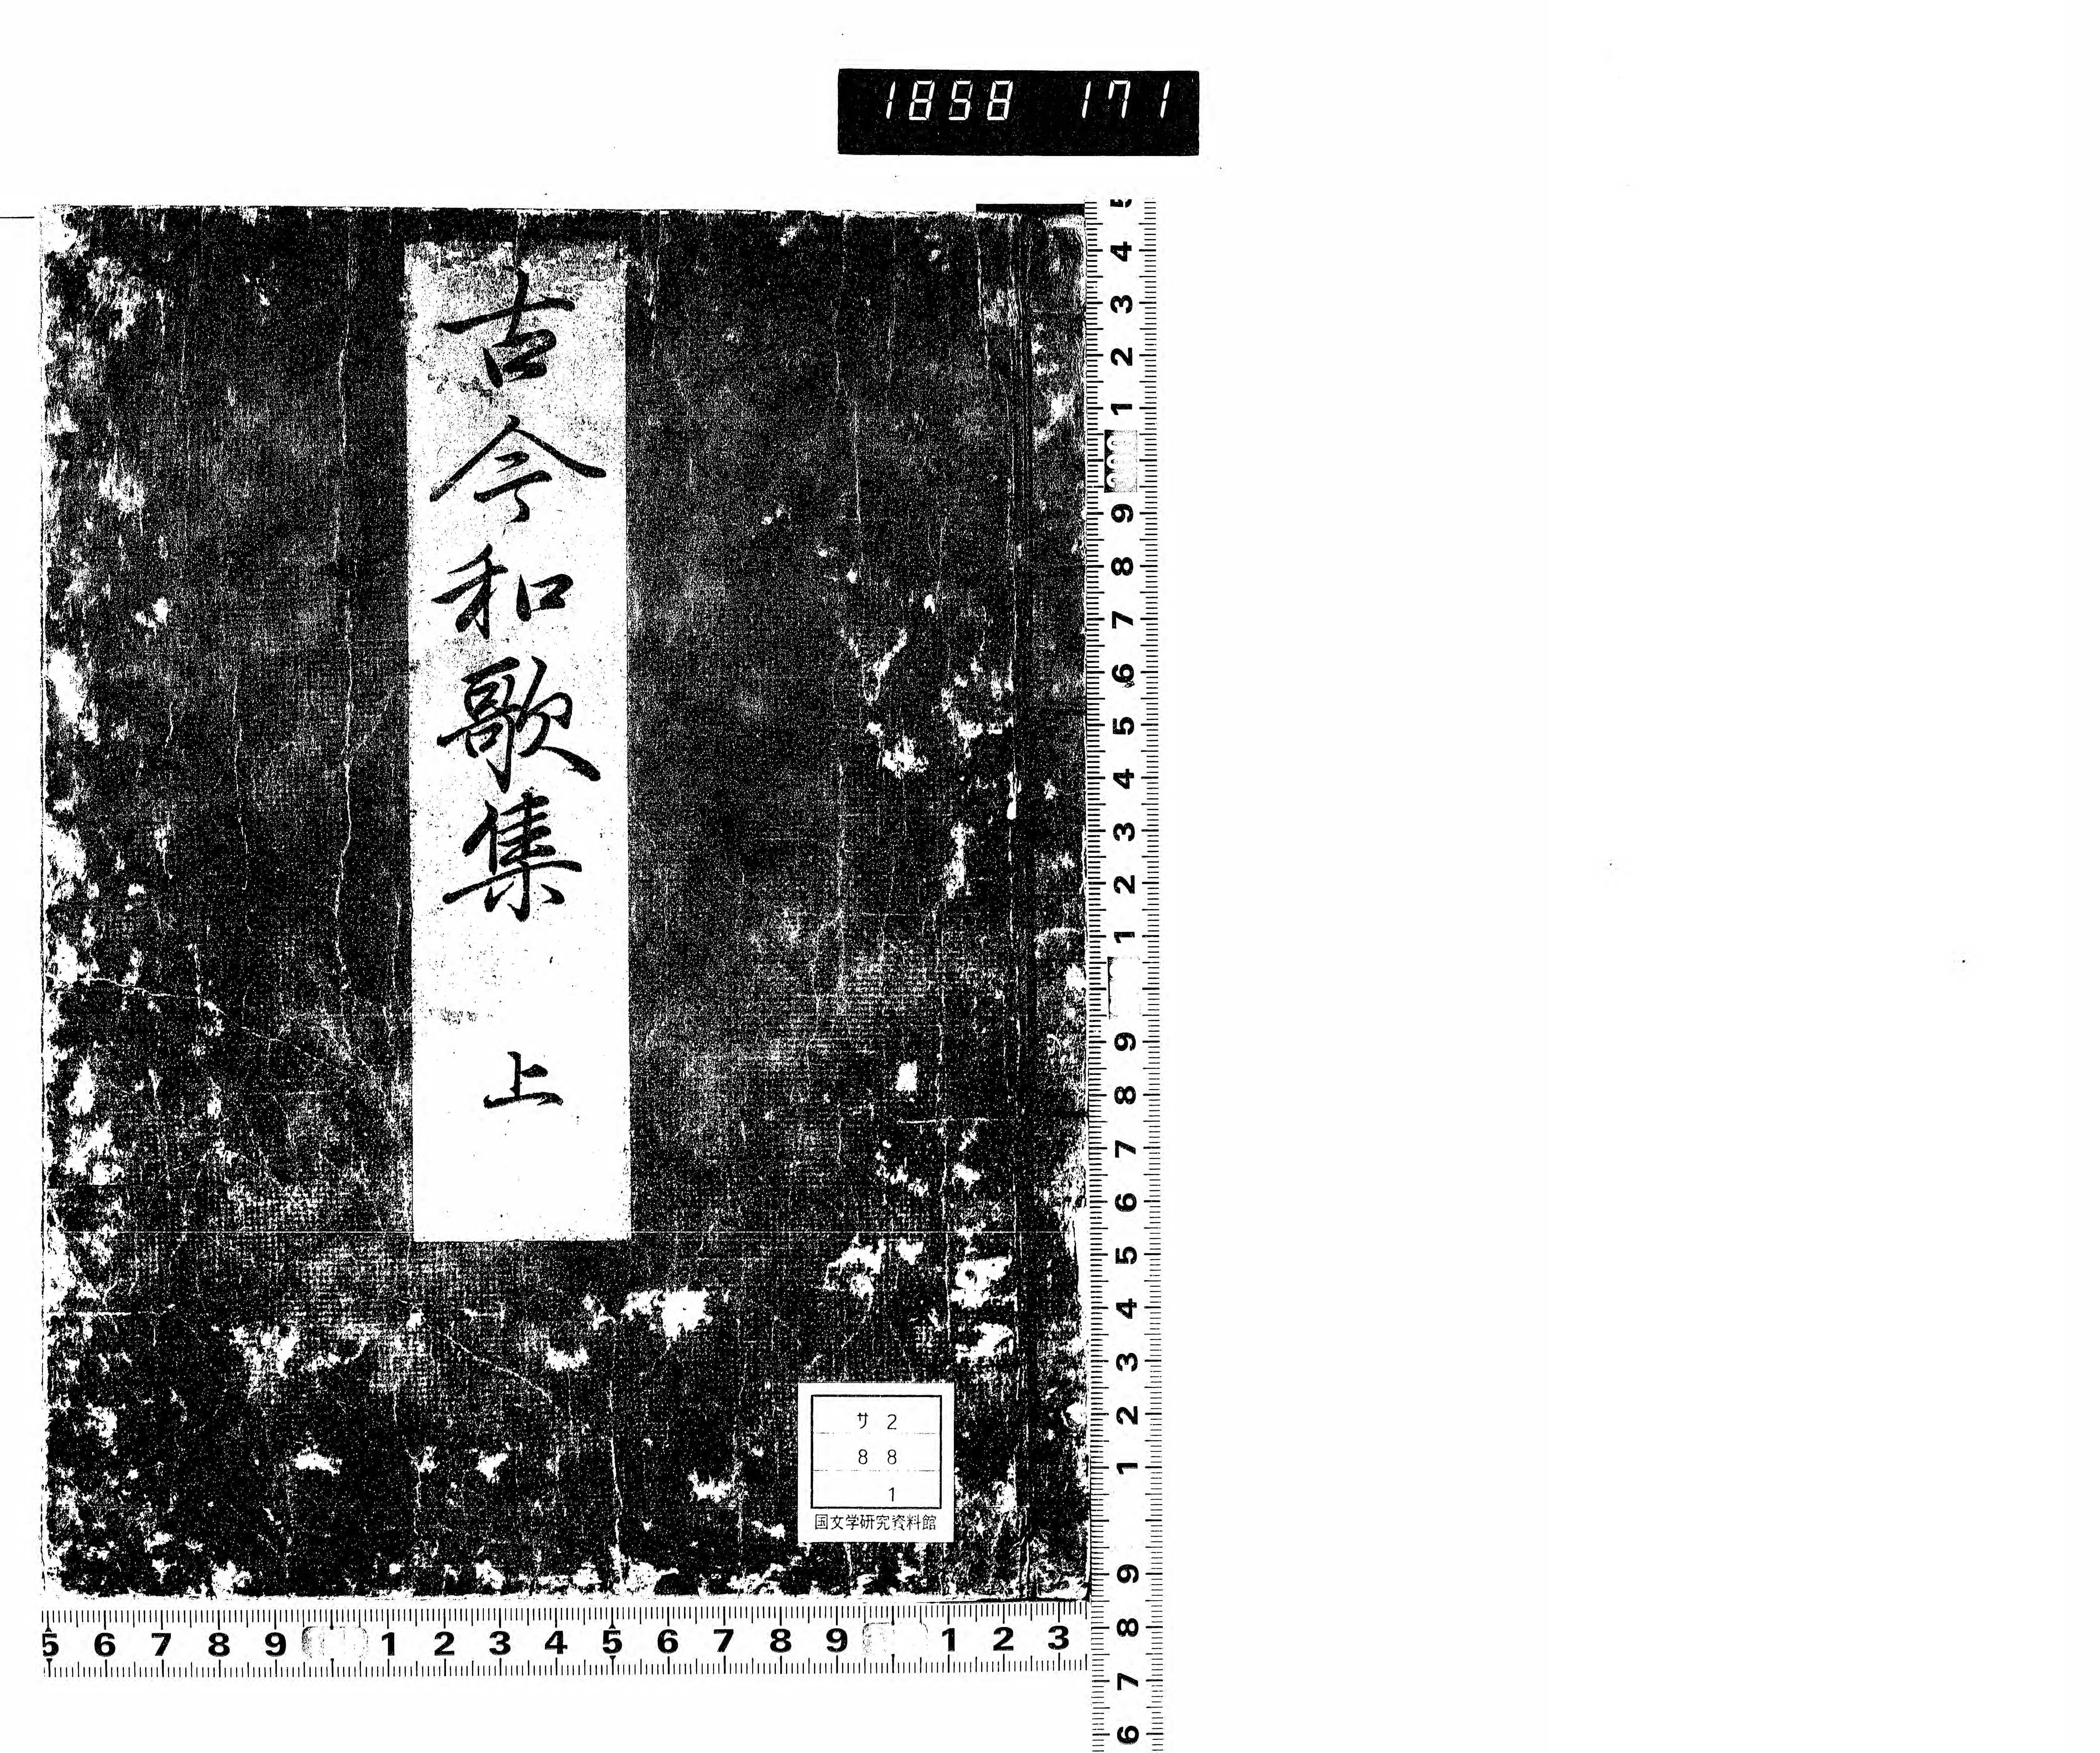 1858 171
古今和歌集 上
サ 2
8 8
1
国文学研究資料館
4 3 2 1 9 8 7 6 5 4 3 2 1 9 8 7 6 5 4 3 2 1 9 8 7 6
5 6 7 8 9 1 2 3 4 5 6 7 8 9 1 2 3